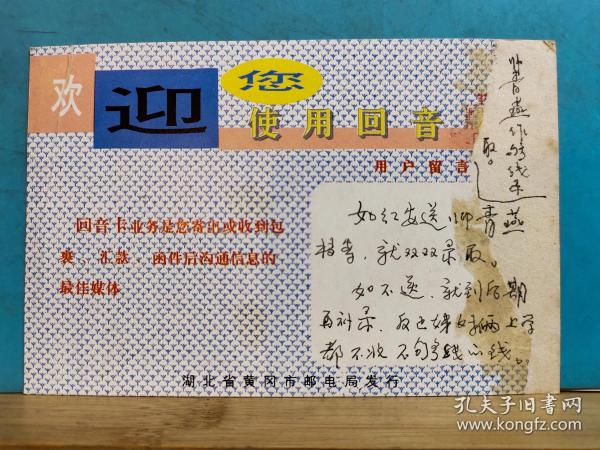 欢
迎
您
使用回音
用户留言
回音卡业务是您寄出或收到包
裹、汇款 函件后沟通信息的
最佳媒体
如红安送 青燕
档案,就双双录取。
如不送,就到后期
再补录,反正姊妹俩上学
都不收不够分数线的钱。
取。
湖北省黄冈市邮电局发行
孔夫子旧书网
www.kongfz.com